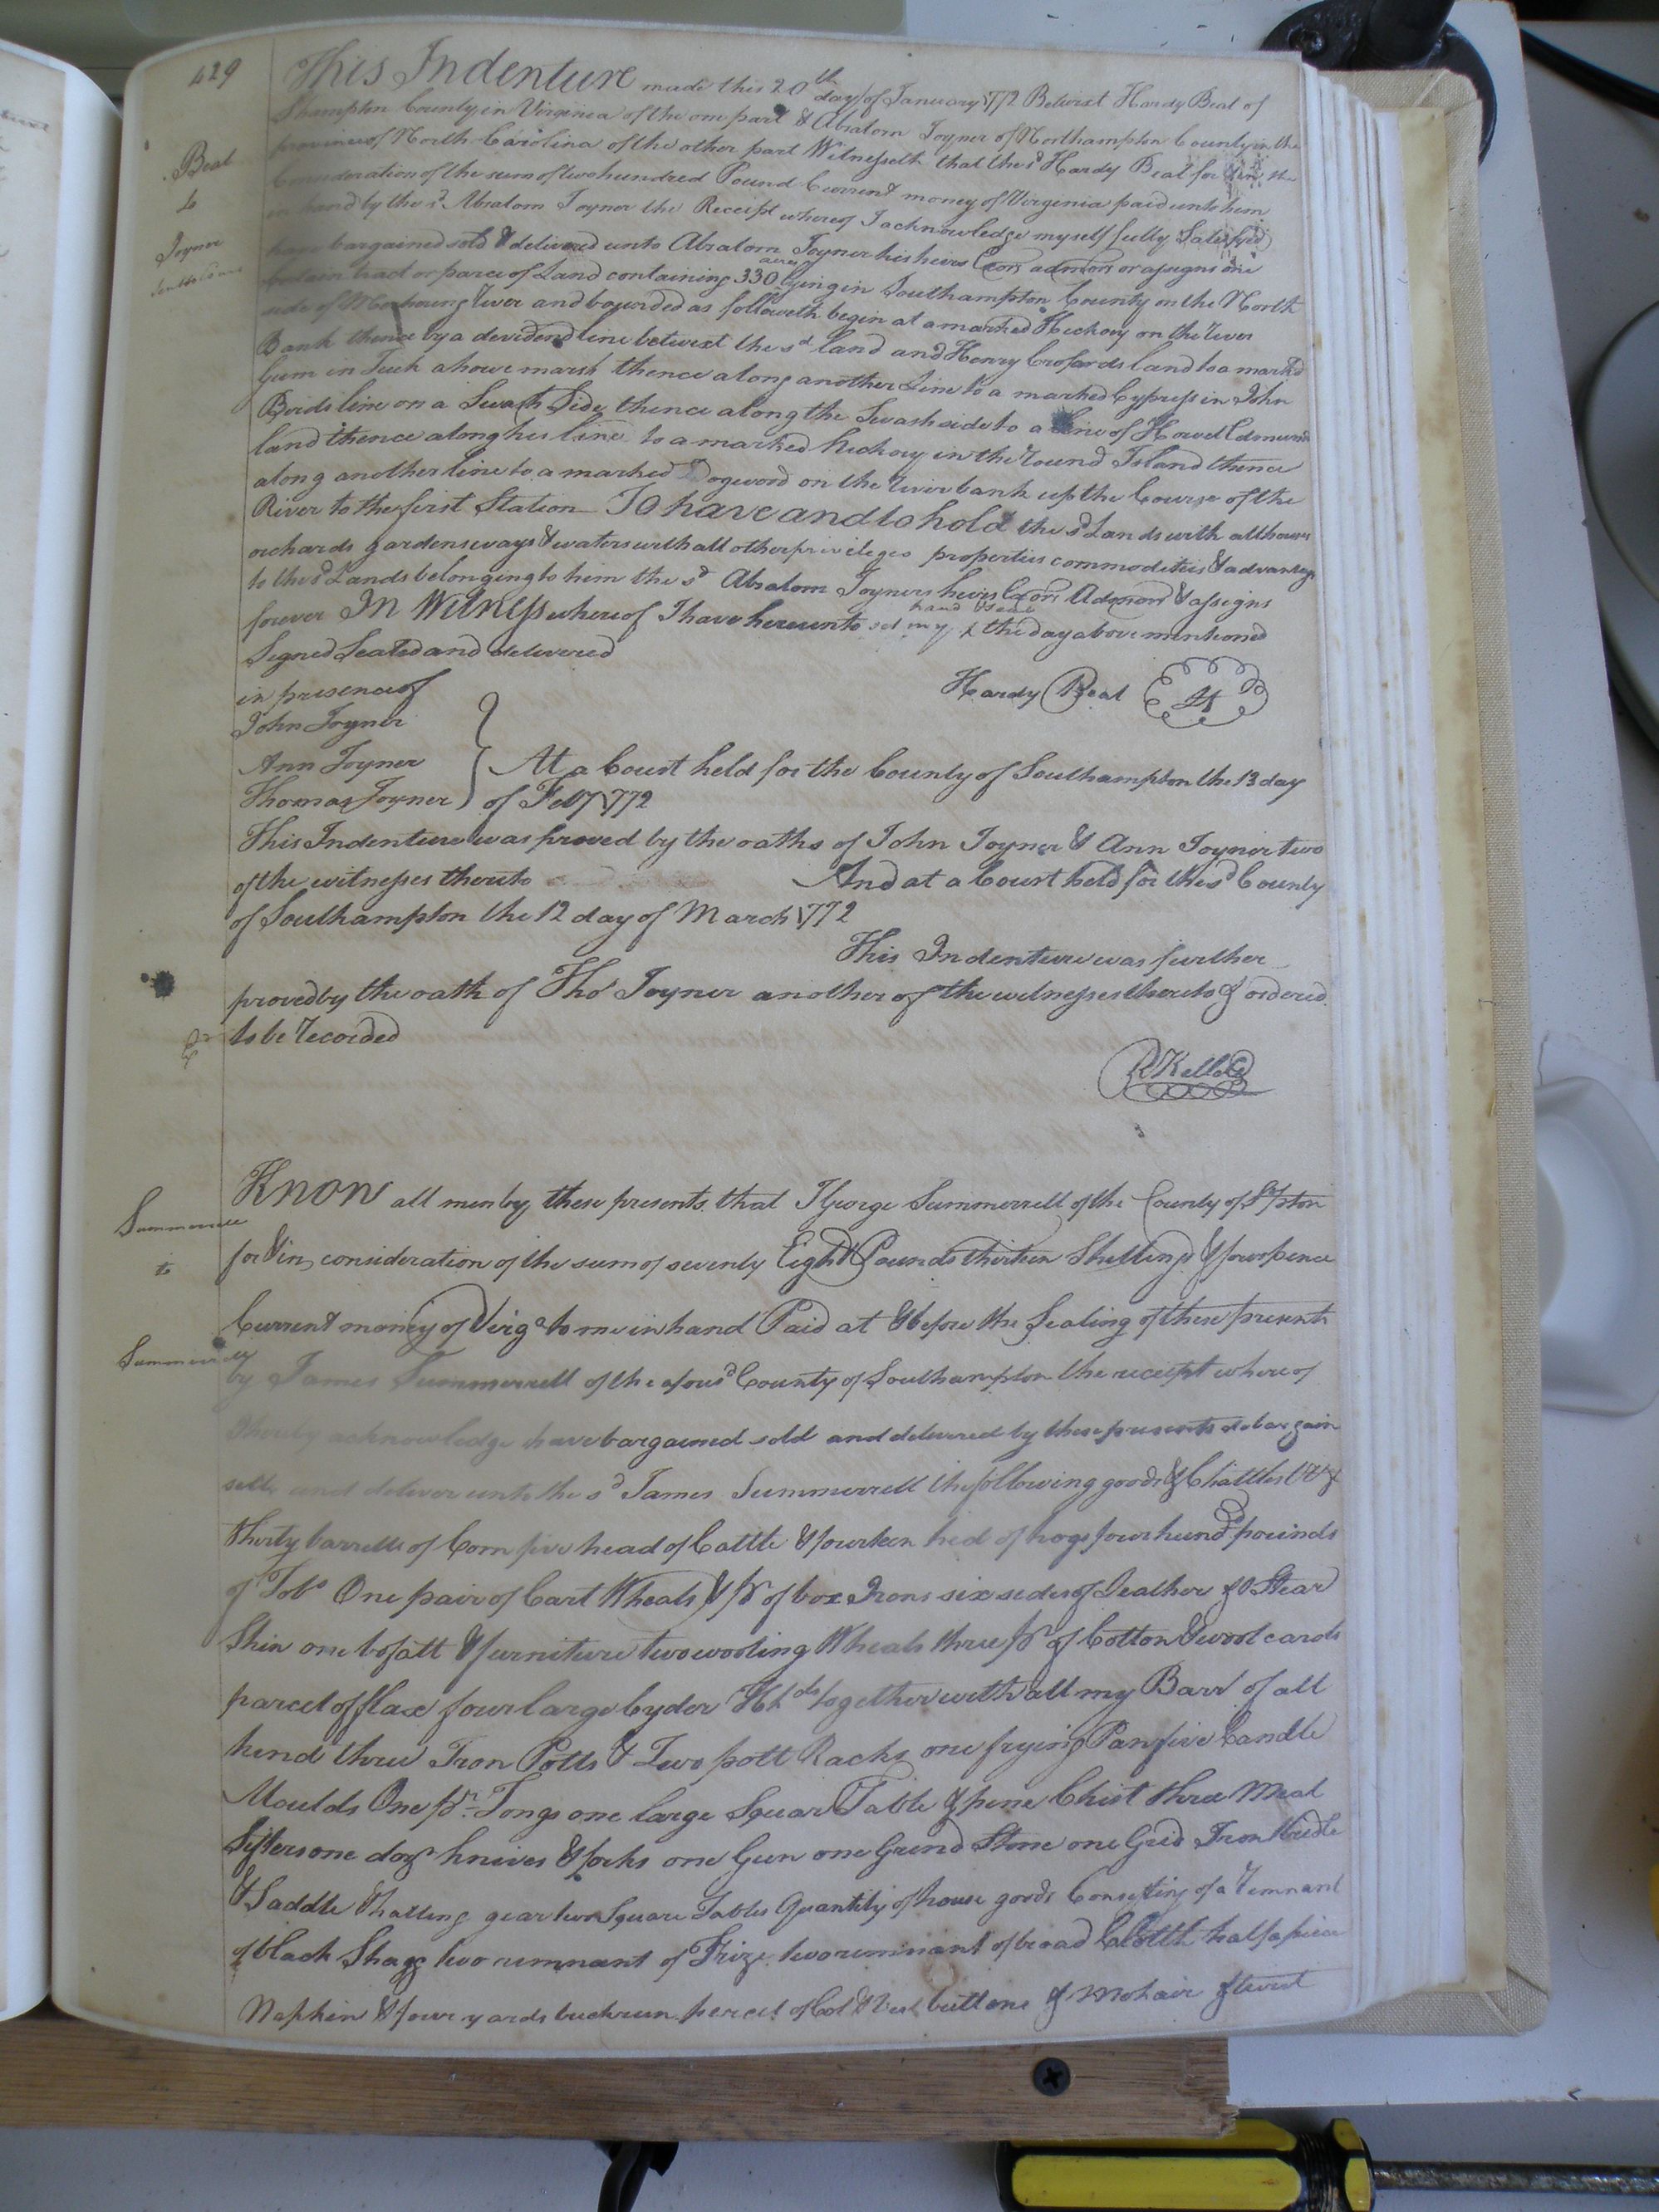 429
This Indenture made this 20th day of January 1772 Betwixt Hardy Beal of
Shampton County in Virginia of the one part & Absalom Joyner of Northampton County in the
province of North Carolina of the other part Witnesseth that the sd Hardy Beal for & in the
Consideration of the sum of two hundred Pound Current money of Virginia paid unto him
in hand by the sd Absalom Joyner the Receipt whereof I acknowledge myself fully Satisfyed
Beal
to
Joyner
have bargained sold & delivered unto Absalom Joyner his heirs Exors admors or assigns one
certain tract or parce of Land containing 330 acres lying in Southampton County on the North
side of Meherring River and bounded as followeth begin at a marked Hickory on the River
Bank thence by a devidend line betwixt the sd land and Henry Crofards land to a marked
Gum in Tuck ahowe marsh thence along another Line to a marked Cypress in John
Boids line on a Swash Side thence along the Swash side to a Line of Howel Edmunds
land thence along his line to a marked hickory in the Round Island thence
along another line to a marked Dogwood on the River bank up the Course of the
River to the first Station To have and to hold the sd Lands with all houses
orchards gardens ways & waters with all other privileges properties commodities & advantage
to the sd Lands belonging to him the sd Absalom Joyners heirs Exors Admors & assigns
forever IN WITNESS whereof I have hereunto set my hand & seal the day above mentioned
Signed Sealed and delivered
in presence of
Hardy Beal
John Joyner
Ann Joyner
Thomas Joyner
At a Court held for the County of Southampton the 13 day
of Feby 1772
This Indenture was proved by the oaths of John Joyner & Ann Joyner two
of the witnesses thereto And at a Court held for the sd County
of Southampton the 12 day of March 1772
This Indenture was further
proved by the oath of Thos Joyner another of the witnesses thereto & ordered
to be Recorded
Ex
R Kello C
Summerell
to
Summerell
KNOW all men by these presents that I George Summerrell of the County of S'pton
for & in consideration of the sum of seventy Eight Pounds thirteen Shillings & four pence
Current money of Virga to me in hand Paid at & before the Sealing of these presents
by James Summerrell of the afores'd County of Southampton the receipt where of
I hereby acknowledge have bargained sold and delivered by these presents do bargain
sells and deliver unto the sd James Summerrell the following goods & Chattles
thirty barrells of Corn five head of Cattle & fourteen hed of hogs four hund'd pounds
of Tobo One pair of Cart Wheals & pr of box Irons six sides of Leather & Stear
Skin one & furniture two wooling Wheals three pr of Cotton & wool cards
parcel of flax four large Cyder Hhds together with all my Barr of all
kind three Iron Potts & Two pott Racks one frying Pan five Candle
Moulds One pr Tongs one large Squar Table & pine Chist three Meal
Sifters one doz knives & forks one Gun one Grind Stone one Grid Iron Bridle
& Saddle & halling gear two Square Tables Quantity of house goods Consisting of a Remnant
of black Shagg two remnant of Frize two remnant of broad Cloth half a piece
Napkin & four yards buckrum percel of Cot & Vest buttons & Mohair & twist